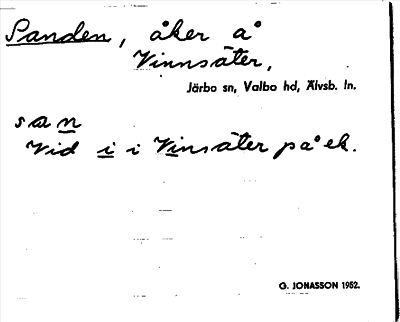 Sanden, åker å
Vinnsäter,
Järbo sn, Valbo hd, Älvsb. ln.
san
Vid i i Vinsäter på ek.
G. JONASSON 1952.